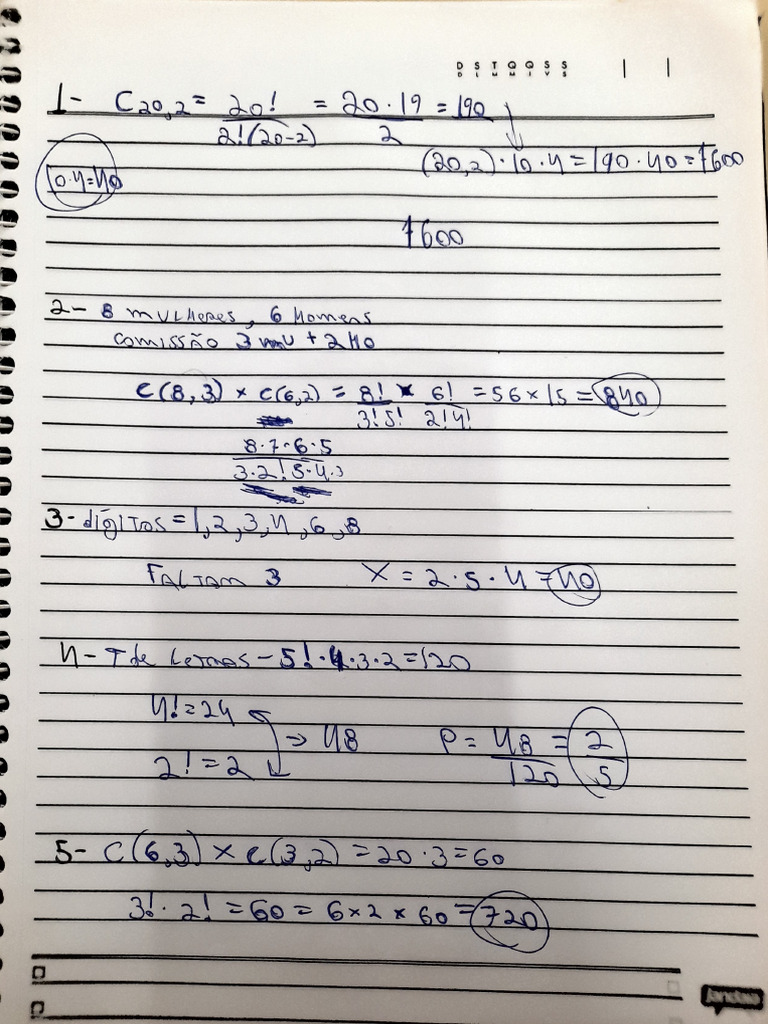 D S T Q Q S S
D L M M J V S
1- C20,2 = 20! / 2!(20-2) = 20·19 / 2 = 190
(20,2)·10·4 = 190·40 = 7600
10·4=40
7600
2- 8 mulheres, 6 homens
comissão 3 mu + 2 Ho
C(8,3) × C(6,2) = 8! / 3!5! × 6! / 2!4! = 56 × 15 = 840
8·7·6·5
3·2! 5·4·3
3- dígitos = 1,2,3,4,6,8
Faltam 3 X = 2·5·4 = 40
4- T de letras - 5!·4·3·2 = 120
4! = 24
⇒ 48 P = 48 / 120 = 2 / 5
2! = 2
5- C(6,3) × C(3,2) = 20·3 = 60
3!·2! = 60 = 6×2×60 = 720
jandaia